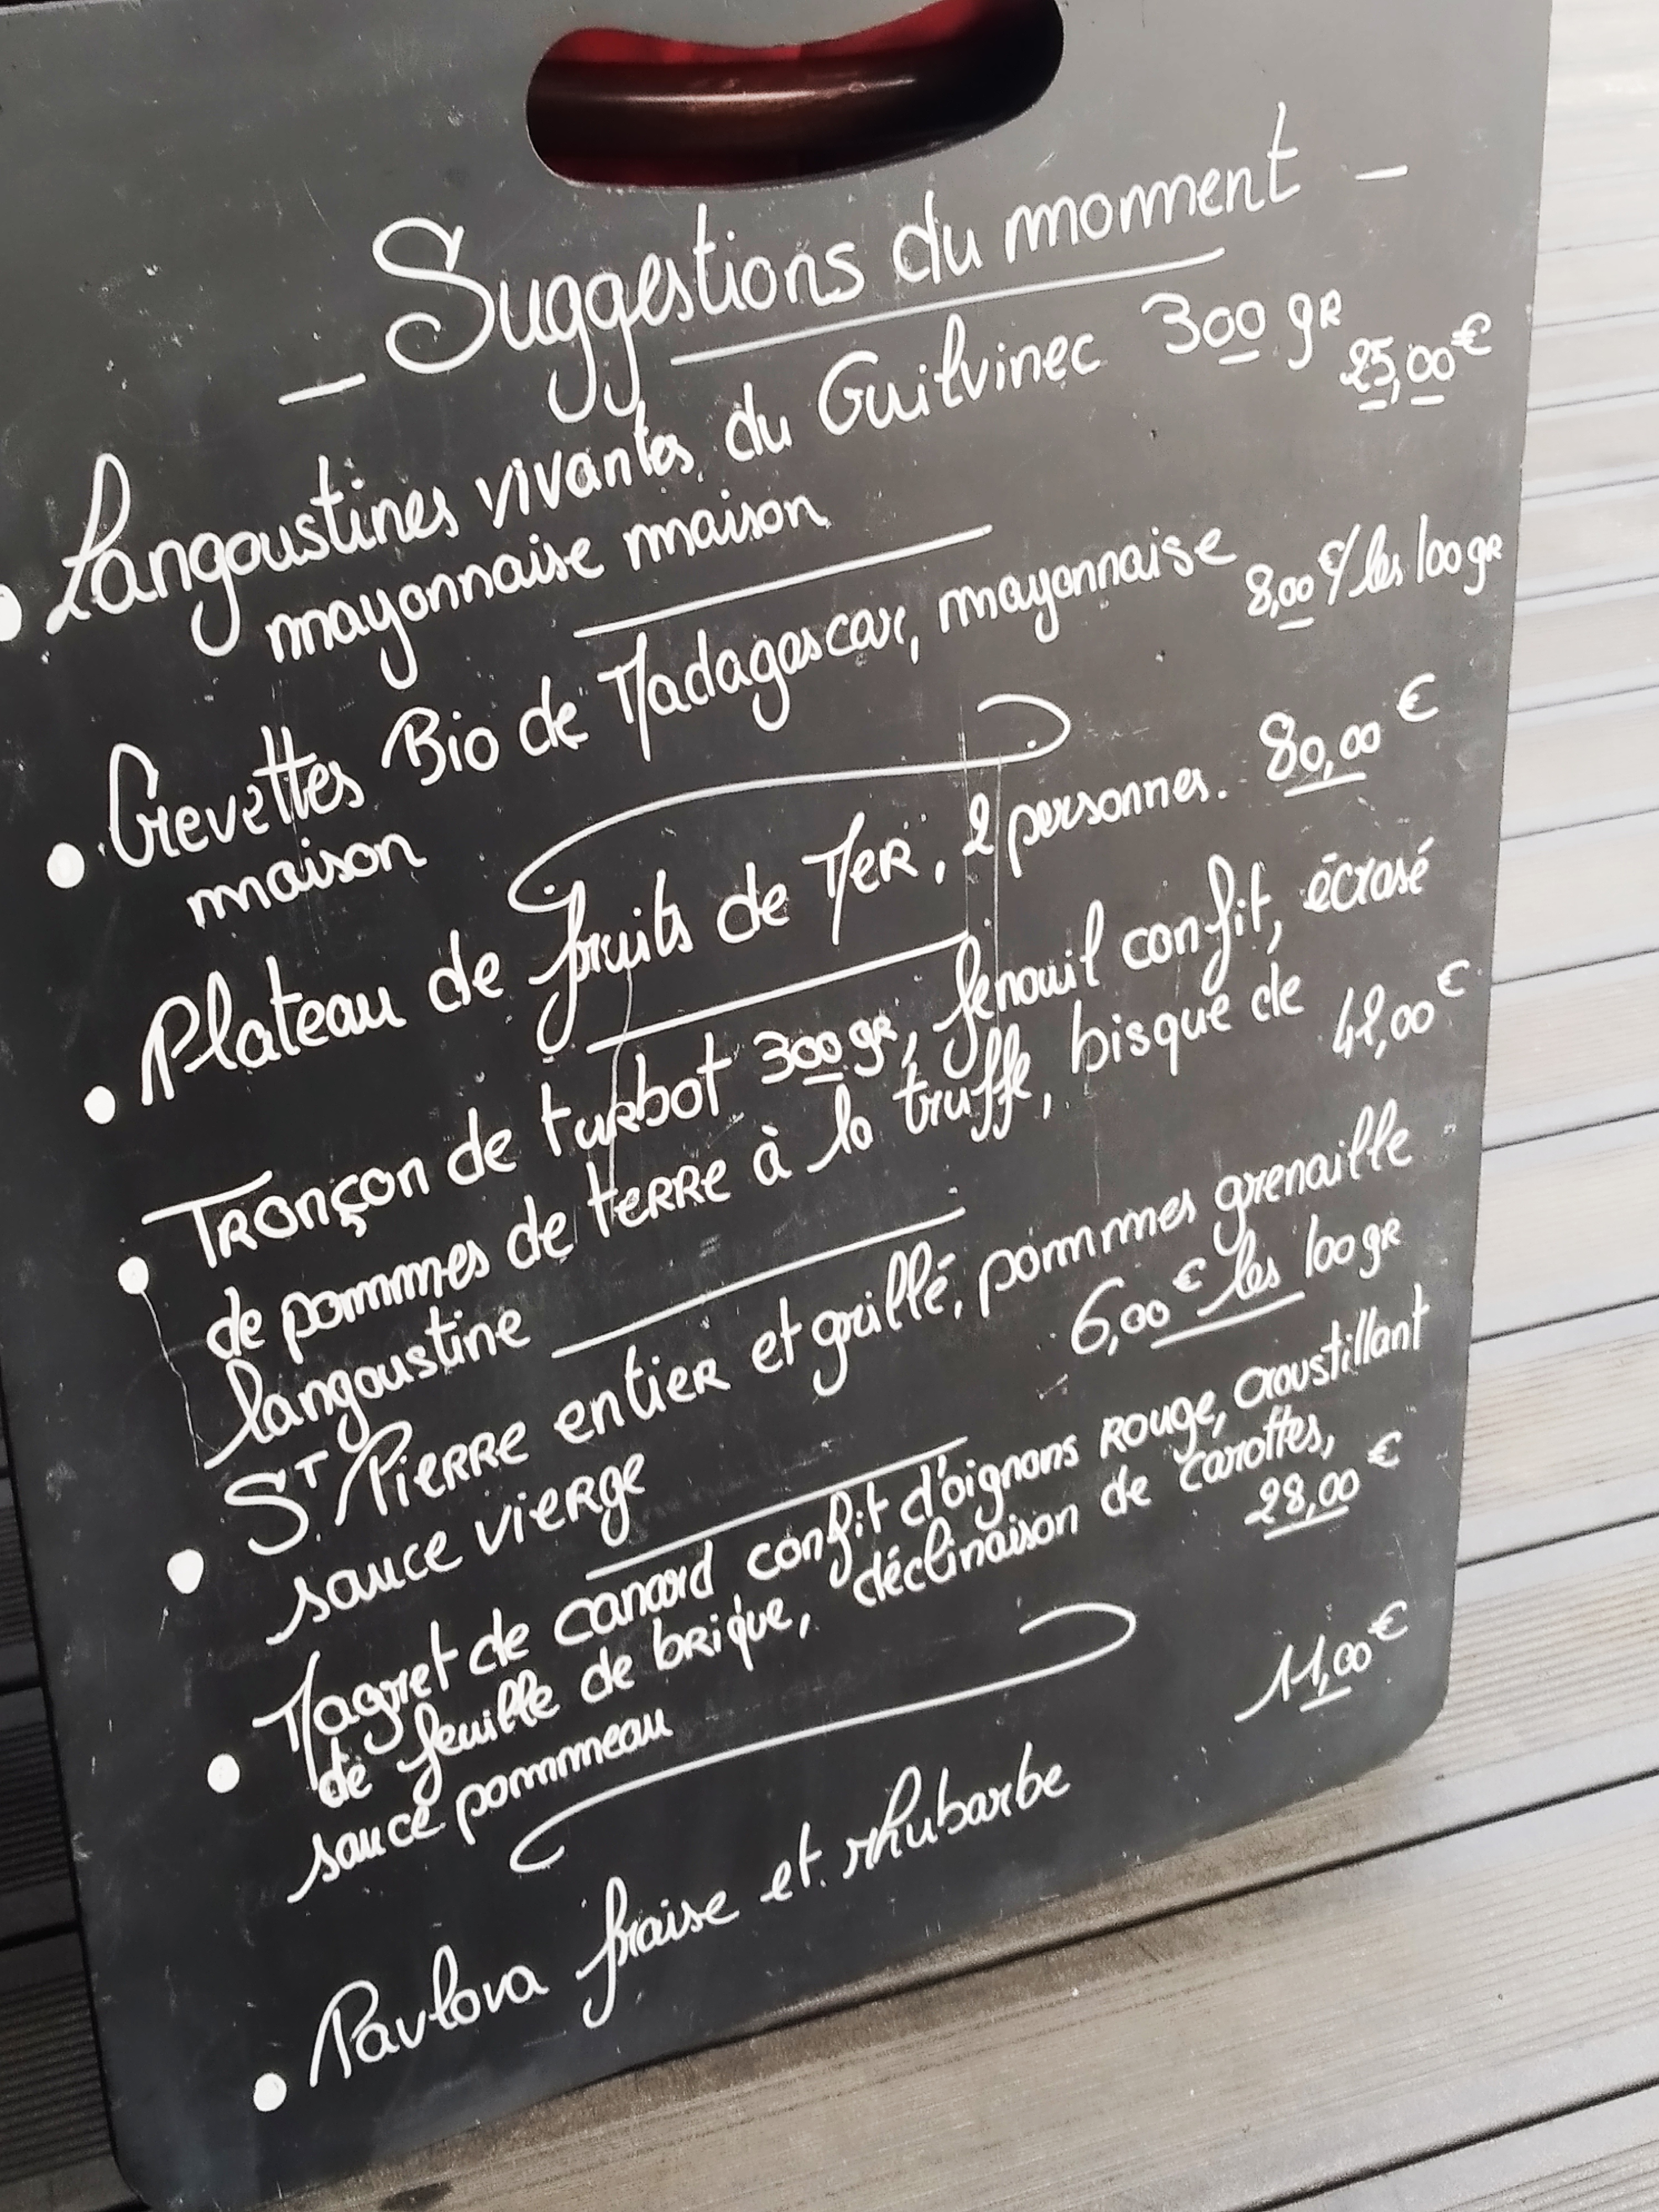 _ Suggestions du moment _
• Langoustines vivantes du Guilvinec 300 gr
25,00€
mayonnaise maison
• Crevettes Bio de Madagascar, mayonnaise
8,00€/les 100gr
maison
• Plateau de fruits de Mer, 2 personnes. 80,00€
• Tronçon de turbot 300gr, fenouil confit, écrasé
de pommes de terre à la truffe, bisque de
42,00€
langoustine
• ST. Pierre entier et grillé, pommes grenaille
6,00€ les 100gr
sauce vierge
• Magret de canard, confit d'oignons rouge, croustillant
de feuille de brique, déclinaison de carottes,
28,00€
sauce pommeau
11,00€
• Pavlova fraise et rhubarbe